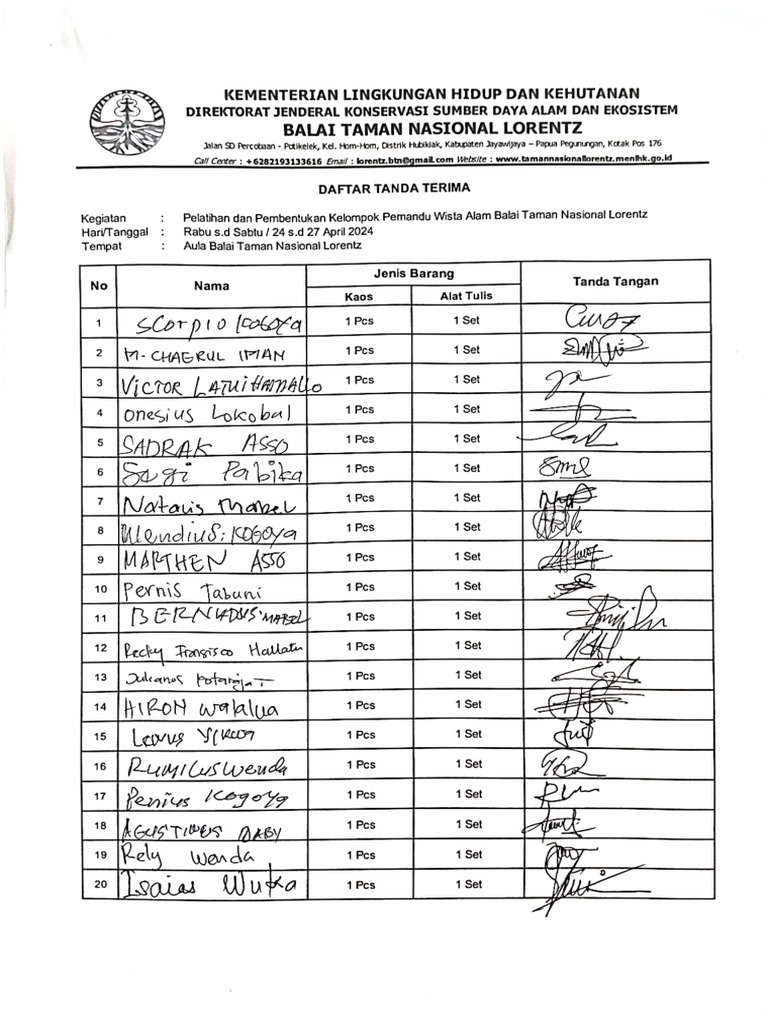 KEMENTERIAN LINGKUNGAN HIDUP DAN KEHUTANAN
DIREKTORAT JENDERAL KONSERVASI SUMBER DAYA ALAM DAN EKOSISTEM
BALAI TAMAN NASIONAL LORENTZ
Jalan SD Percobaan - Potikelek, Kel. Hom-Hom, Distrik Hubikiak, Kabupaten Jayawijaya – Papua Pegunungan, Kotak Pos 176
Call Center : +6282193133616 Email : lorentz.btn@gmail.com Website : www.tamannasionallorentz.menlhk.go.id
DAFTAR TANDA TERIMA
Kegiatan : Pelatihan dan Pembentukan Kelompok Pemandu Wista Alam Balai Taman Nasional Lorentz
Hari/Tanggal : Rabu s.d Sabtu / 24 s.d 27 April 2024
Tempat : Aula Balai Taman Nasional Lorentz
No Nama Jenis Barang Tanda Tangan
Kaos Alat Tulis
1 Scorpio Kogoya 1 Pcs 1 Set
2 M. CHAERUL IMAN 1 Pcs 1 Set
3 VICTOR 1 Pcs 1 Set
4 Onesius Lokobal 1 Pcs 1 Set
5 SADRAK ASSO 1 Pcs 1 Set
6 Pabika 1 Pcs 1 Set
7 Natalis Mabel 1 Pcs 1 Set
8 Wendius: KOGOYA 1 Pcs 1 Set
9 MARTHEN ASSO 1 Pcs 1 Set
10 Pernis Tabuni 1 Pcs 1 Set
11 BERNADUS: MABEL 1 Pcs 1 Set
12 Recky Fransisco 1 Pcs 1 Set
13 1 Pcs 1 Set
14 HIRON Walalua 1 Pcs 1 Set
15 1 Pcs 1 Set
16 RUMILUS Wenda 1 Pcs 1 Set
17 Penius Kogoya 1 Pcs 1 Set
18 AGUSTINUS DABY 1 Pcs 1 Set
19 Rely Wenda 1 Pcs 1 Set
20 Isaias Wuka 1 Pcs 1 Set